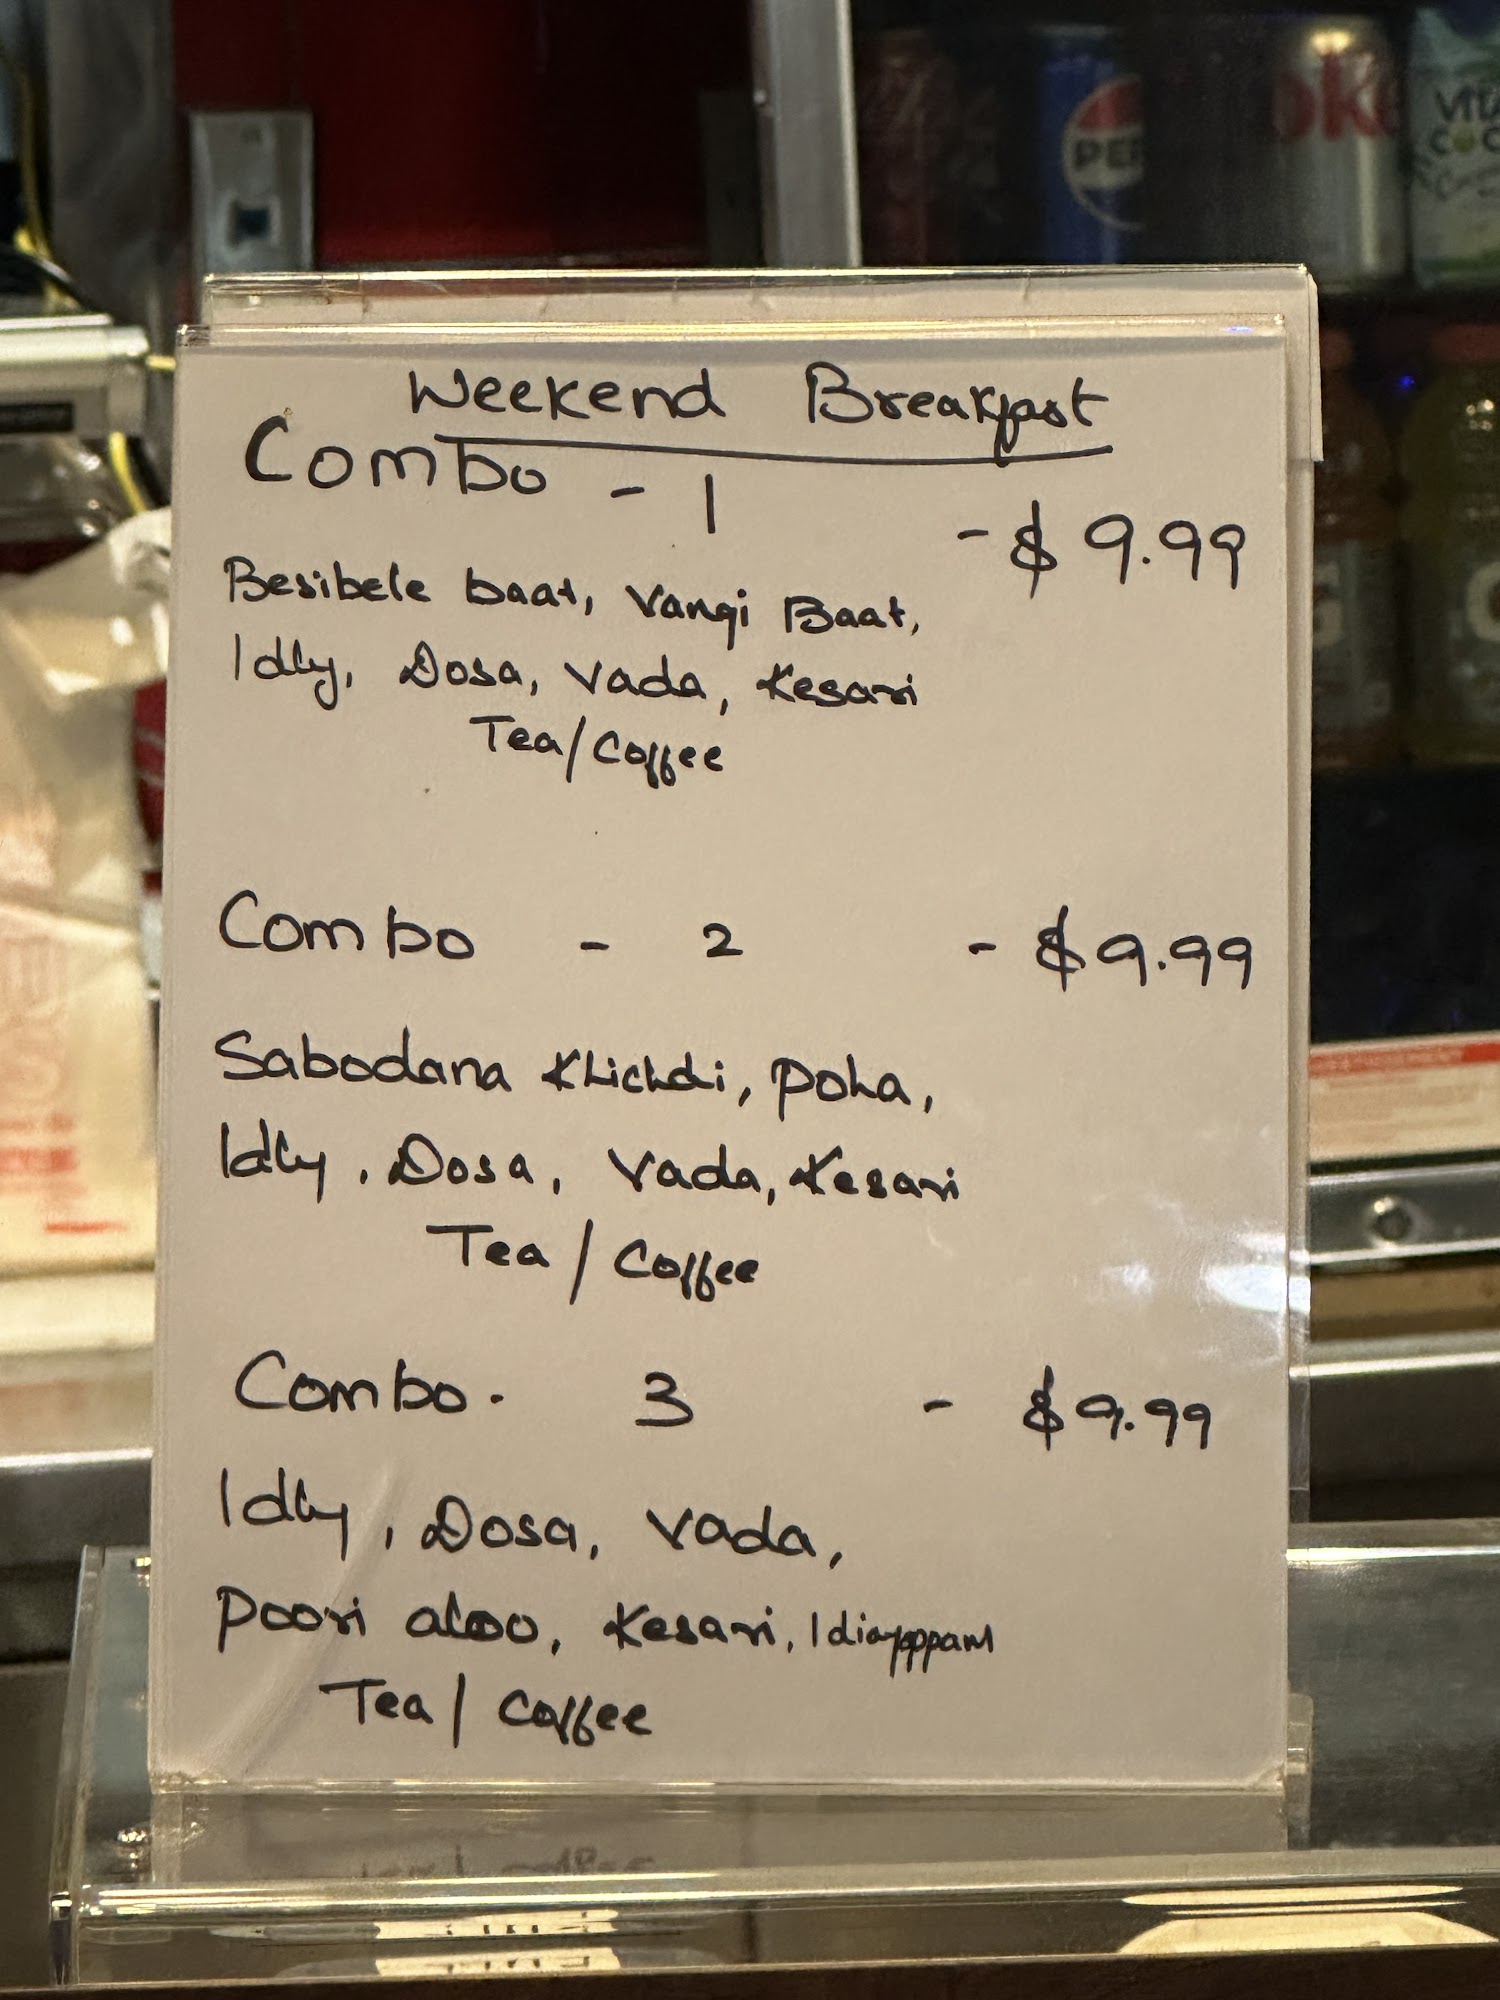 Weekend Breakfast
Combo - 1 - $ 9.99
Besibele baat, Vangi Baat,
Idly, Dosa, Vada, Kesari
Tea/Coffee
Combo - 2 - $9.99
Sabodana Khichdi, Poha,
Idly, Dosa, Vada, Kesari
Tea / Coffee
Combo. 3 - $9.99
Idly, Dosa, Vada,
Poori aloo, Kesari, Idiayappam
Tea / Coffee